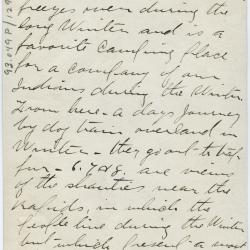 freezes over during the
long Winter and is a
favorite camping place
for a company of our
Indians during the Winter
from here - a days journey
by dog train overland in
Winter - they go out to trap
fur - 6.7&8. are views
of the shanties near the
rapids, in which the
people live during the Winter
but which present a most
93.049P/129